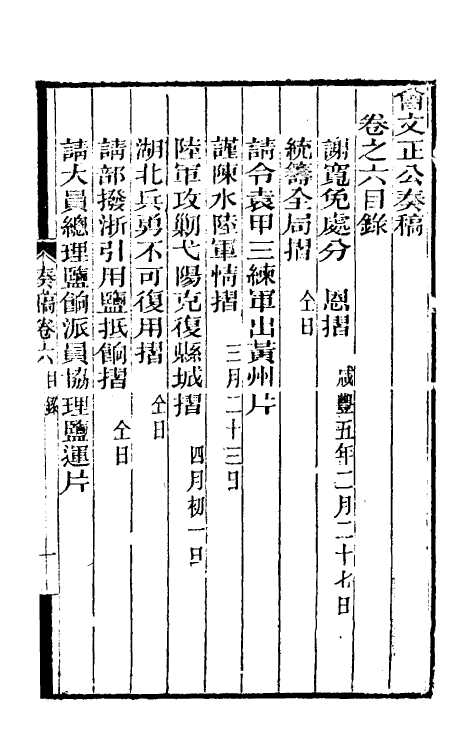 曾文正公奏稿
卷之六目錄
謝寬免處分 恩摺 咸豐五年二月二十七日
統籌全局摺 仝日
請令袁甲三練軍出黃州片
謹陳水陸軍情摺 三月二十三日
陸軍攻勦弋陽克復縣城摺 四月初一日
湖北兵勇不可復用摺 仝日
請部撥浙引用鹽抵餉摺 仝日
請大員總理鹽餉派員協理鹽運片
奏稿卷六 目錄 一